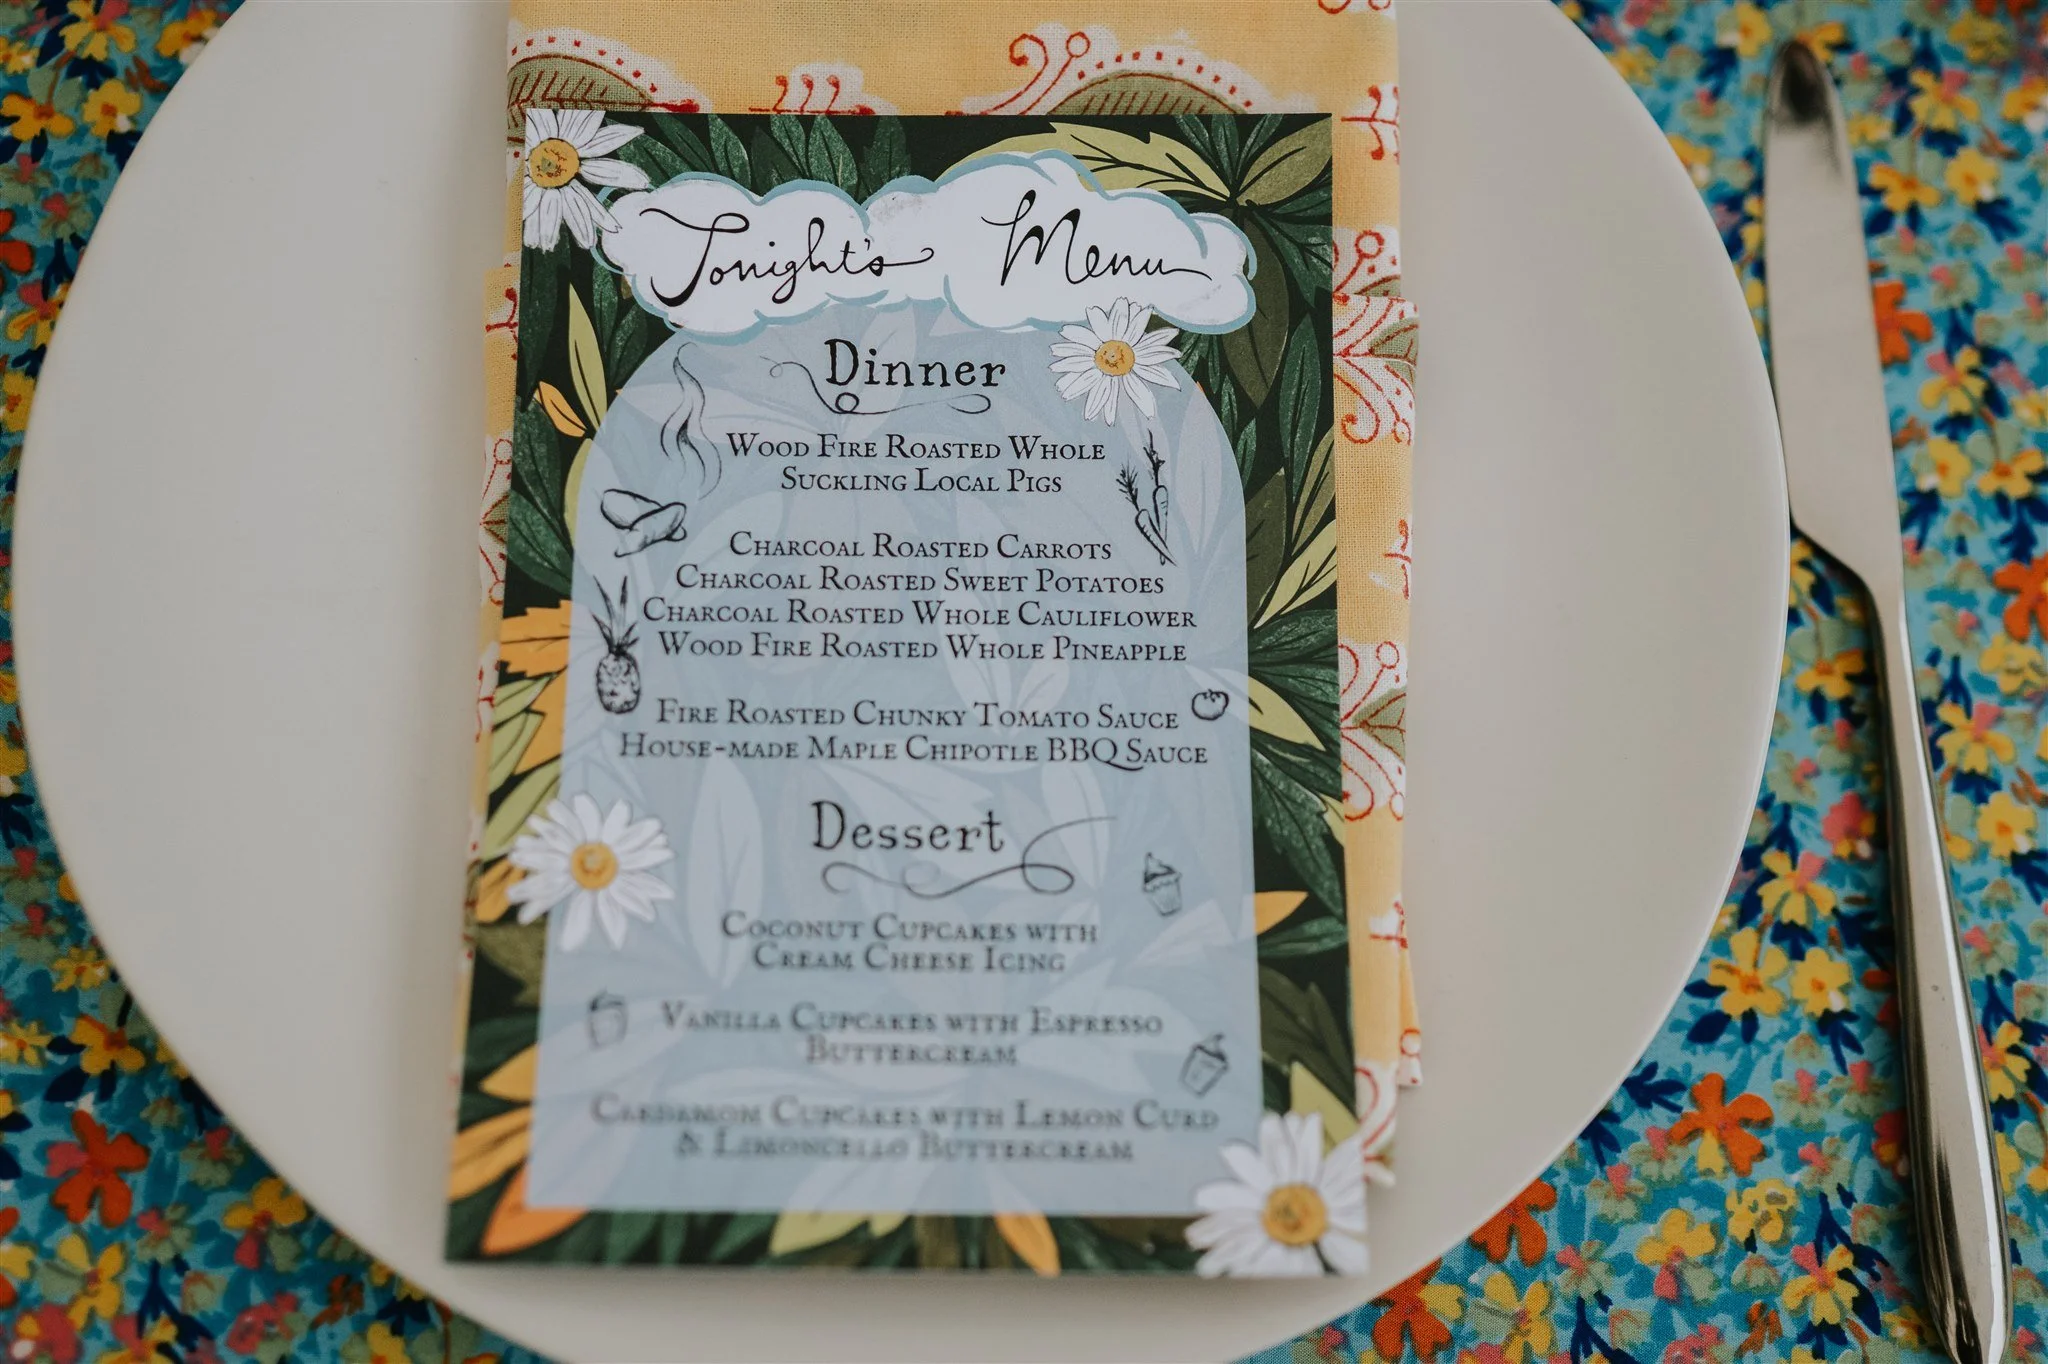 Tonight's Menu
Dinner
Wood Fire Roasted Whole
Suckling Local Pigs
Charcoal Roasted Carrots
Charcoal Roasted Sweet Potatoes
Charcoal Roasted Whole Cauliflower
Wood Fire Roasted Whole Pineapple
Fire Roasted Chunky Tomato Sauce
House-made Maple Chipotle BBQ Sauce
Dessert
Coconut Cupcakes with
Cream Cheese Icing
Vanilla Cupcakes with Espresso
Buttercream
Cardamom Cupcakes with Lemon Curd
& Limoncello Buttercream